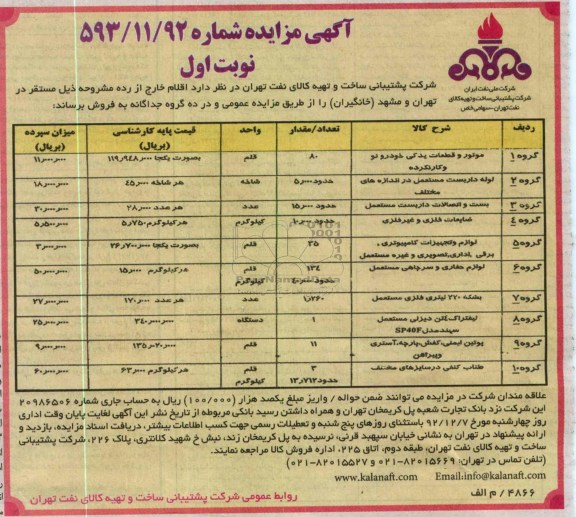 آگهی مزایده شماره ۵۹۳/۱۱/۹۲
نوبت اول
شرکت ملی نفت ایران
شرکت پشتیبانی ساخت و تهیه کالای
نفت تهران - سهامی خاص
شرکت پشتیبانی ساخت و تهیه کالای نفت تهران در نظر دارد اقلام خارج از رده مشروحه ذیل مستقر در
تهران و مشهد (خانگیران) را از طریق مزایده عمومی و در ده گروه جداگانه به فروش برساند:
ردیف شرح کالا تعداد/مقدار واحد قیمت پایه کارشناسی (بریال) میزان سپرده (بریال)
گروه ۱ موتور و قطعات یدکی خودرو نو وکارکرده ۸۰ قلم بصورت یکجا ۱۱۹٫۹۴۸٫۰۰۰ ۱۱٫۰۰۰٫۰۰۰
گروه ۲ لوله داربست مستعمل در اندازه های مختلف حدود ۵٫۰۰۰ شاخه هر شاخه ۴۵٫۰۰۰ ۱۸٫۰۰۰٫۰۰۰
گروه ۳ بست و اتصالات داربست مستعمل حدود ۱۵٫۰۰۰ عدد هر عدد ۲۸٫۰۰۰ ۳۰٫۰۰۰٫۰۰۰
گروه ۴ ضایعات فلزی و غیرفلزی حدود ۱۰٫۰۰۰ کیلوگرم هرکیلوگرم ۵٫۷۵۰ ۵٫۵۰۰٫۰۰۰
گروه ۵ لوازم وتجهیزات کامپیوتری ، برقی ،اداری،تصویری و غیره مستعمل ۳۵ قلم بصورت یکجا ۲۶٫۷۰۰٫۰۰۰ ۳٫۰۰۰٫۰۰۰
گروه ۶ لوازم حفاری و سرچاهی مستعمل ۱۳۴ حدود ۴۰٫۰۰۰ قلم کیلوگرم هرکیلوگرم ۱۵٫۰۰۰ ۵۰٫۰۰۰٫۰۰۰
گروه ۷ بشکه ۲۲۰ لیتری فلزی مستعمل ۱٫۲۶۰ عدد هر عدد ۱۷۰٫۰۰۰ ۲۷٫۰۰۰٫۰۰۰
گروه ۸ لیفتراک ۴تن دیزلی مستعمل سهندمدلSP40F ۱ دستگاه ۳۴۰٫۰۰۰٫۰۰۰ ۲۵٫۰۰۰٫۰۰۰
گروه ۹ پوتین ایمنی،کفش،پارچه،آستری وپیراهن ۱۱ قلم ۹٫۰۰۰٫۰۰۰
گروه ۱۰ طناب کنفی درسایزهای مختلف ۳ حدود ۱۳٫۷۱۲ قلم کیلوگرم هرکیلوگرم ۶۳٫۰۰۰ ۶۰٫۰۰۰٫۰۰۰
علاقه مندان شرکت در مزایده می توانند ضمن حواله / واریز مبلغ یکصد هزار (۱۰۰/۰۰۰) ریال به حساب جاری شماره ۲۰۹۸۶۵۰۶
این شرکت نزد بانک تجارت شعبه پل کریمخان تهران و همراه داشتن رسید بانکی مربوطه از تاریخ نشر این آگهی لغایت پایان وقت اداری
روز چهارشنبه مورخ ۹۲/۱۲/۷ باستثنای روزهای پنج شنبه و تعطیلات رسمی جهت کسب اطلاعات بیشتر، دریافت اسناد مزایده، بازدید و
ارائه پیشنهاد در تهران به نشانی خیابان سپهبد قرنی، نرسیده به پل کریمخان زند، نبش خ شهید کلانتری، پلاک ۲۲۶، شرکت پشتیبانی
ساخت و تهیه کالای نفت تهران، طبقه دوم، اتاق ۲۲۵، اداره فروش کالا مراجعه نمایند.
(تلفن تماس در تهران: ۸۲۰۱۵۶۶۹-۰۲۱ و ۸۲۰۱۵۵۲۷-۰۲۱)
www.kalanaft.com Email:info@kalanaft.com
۴۸۶۶ / م الف
روابط عمومی شرکت پشتیبانی ساخت و تهیه کالای نفت تهران